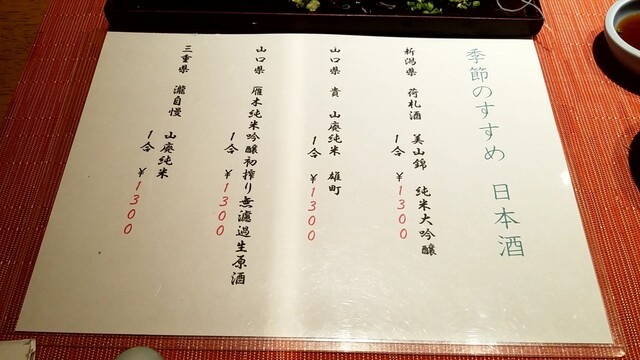 季節のすすめ 日本酒
新潟県 荷札酒 美山錦 純米大吟醸
1合 ¥1300
山口県 貴 山廃純米 雄町
1合 ¥1300
山口県 雁木純米吟醸初搾り無濾過生原酒
1合 ¥1300
三重県 瀧自慢 山廃純米
1合 ¥1300